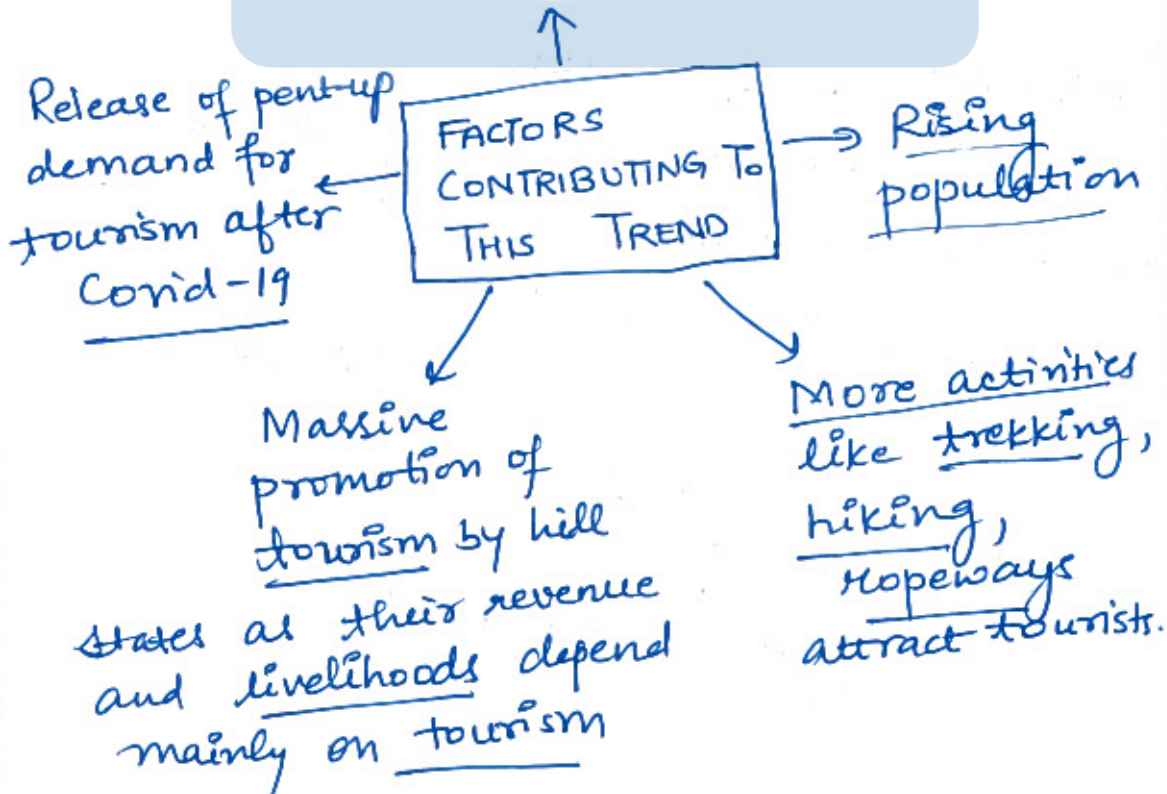 FACTORS
CONTRIBUTING TO
THIS TREND
Release of pent-up
demand for
tourism after
Covid-19
Rising
population
Massive
promotion of
tourism by hill
states as their revenue
and livelihoods depend
mainly on tourism
More activities
like trekking,
hiking,
ropeways
attract tourists.